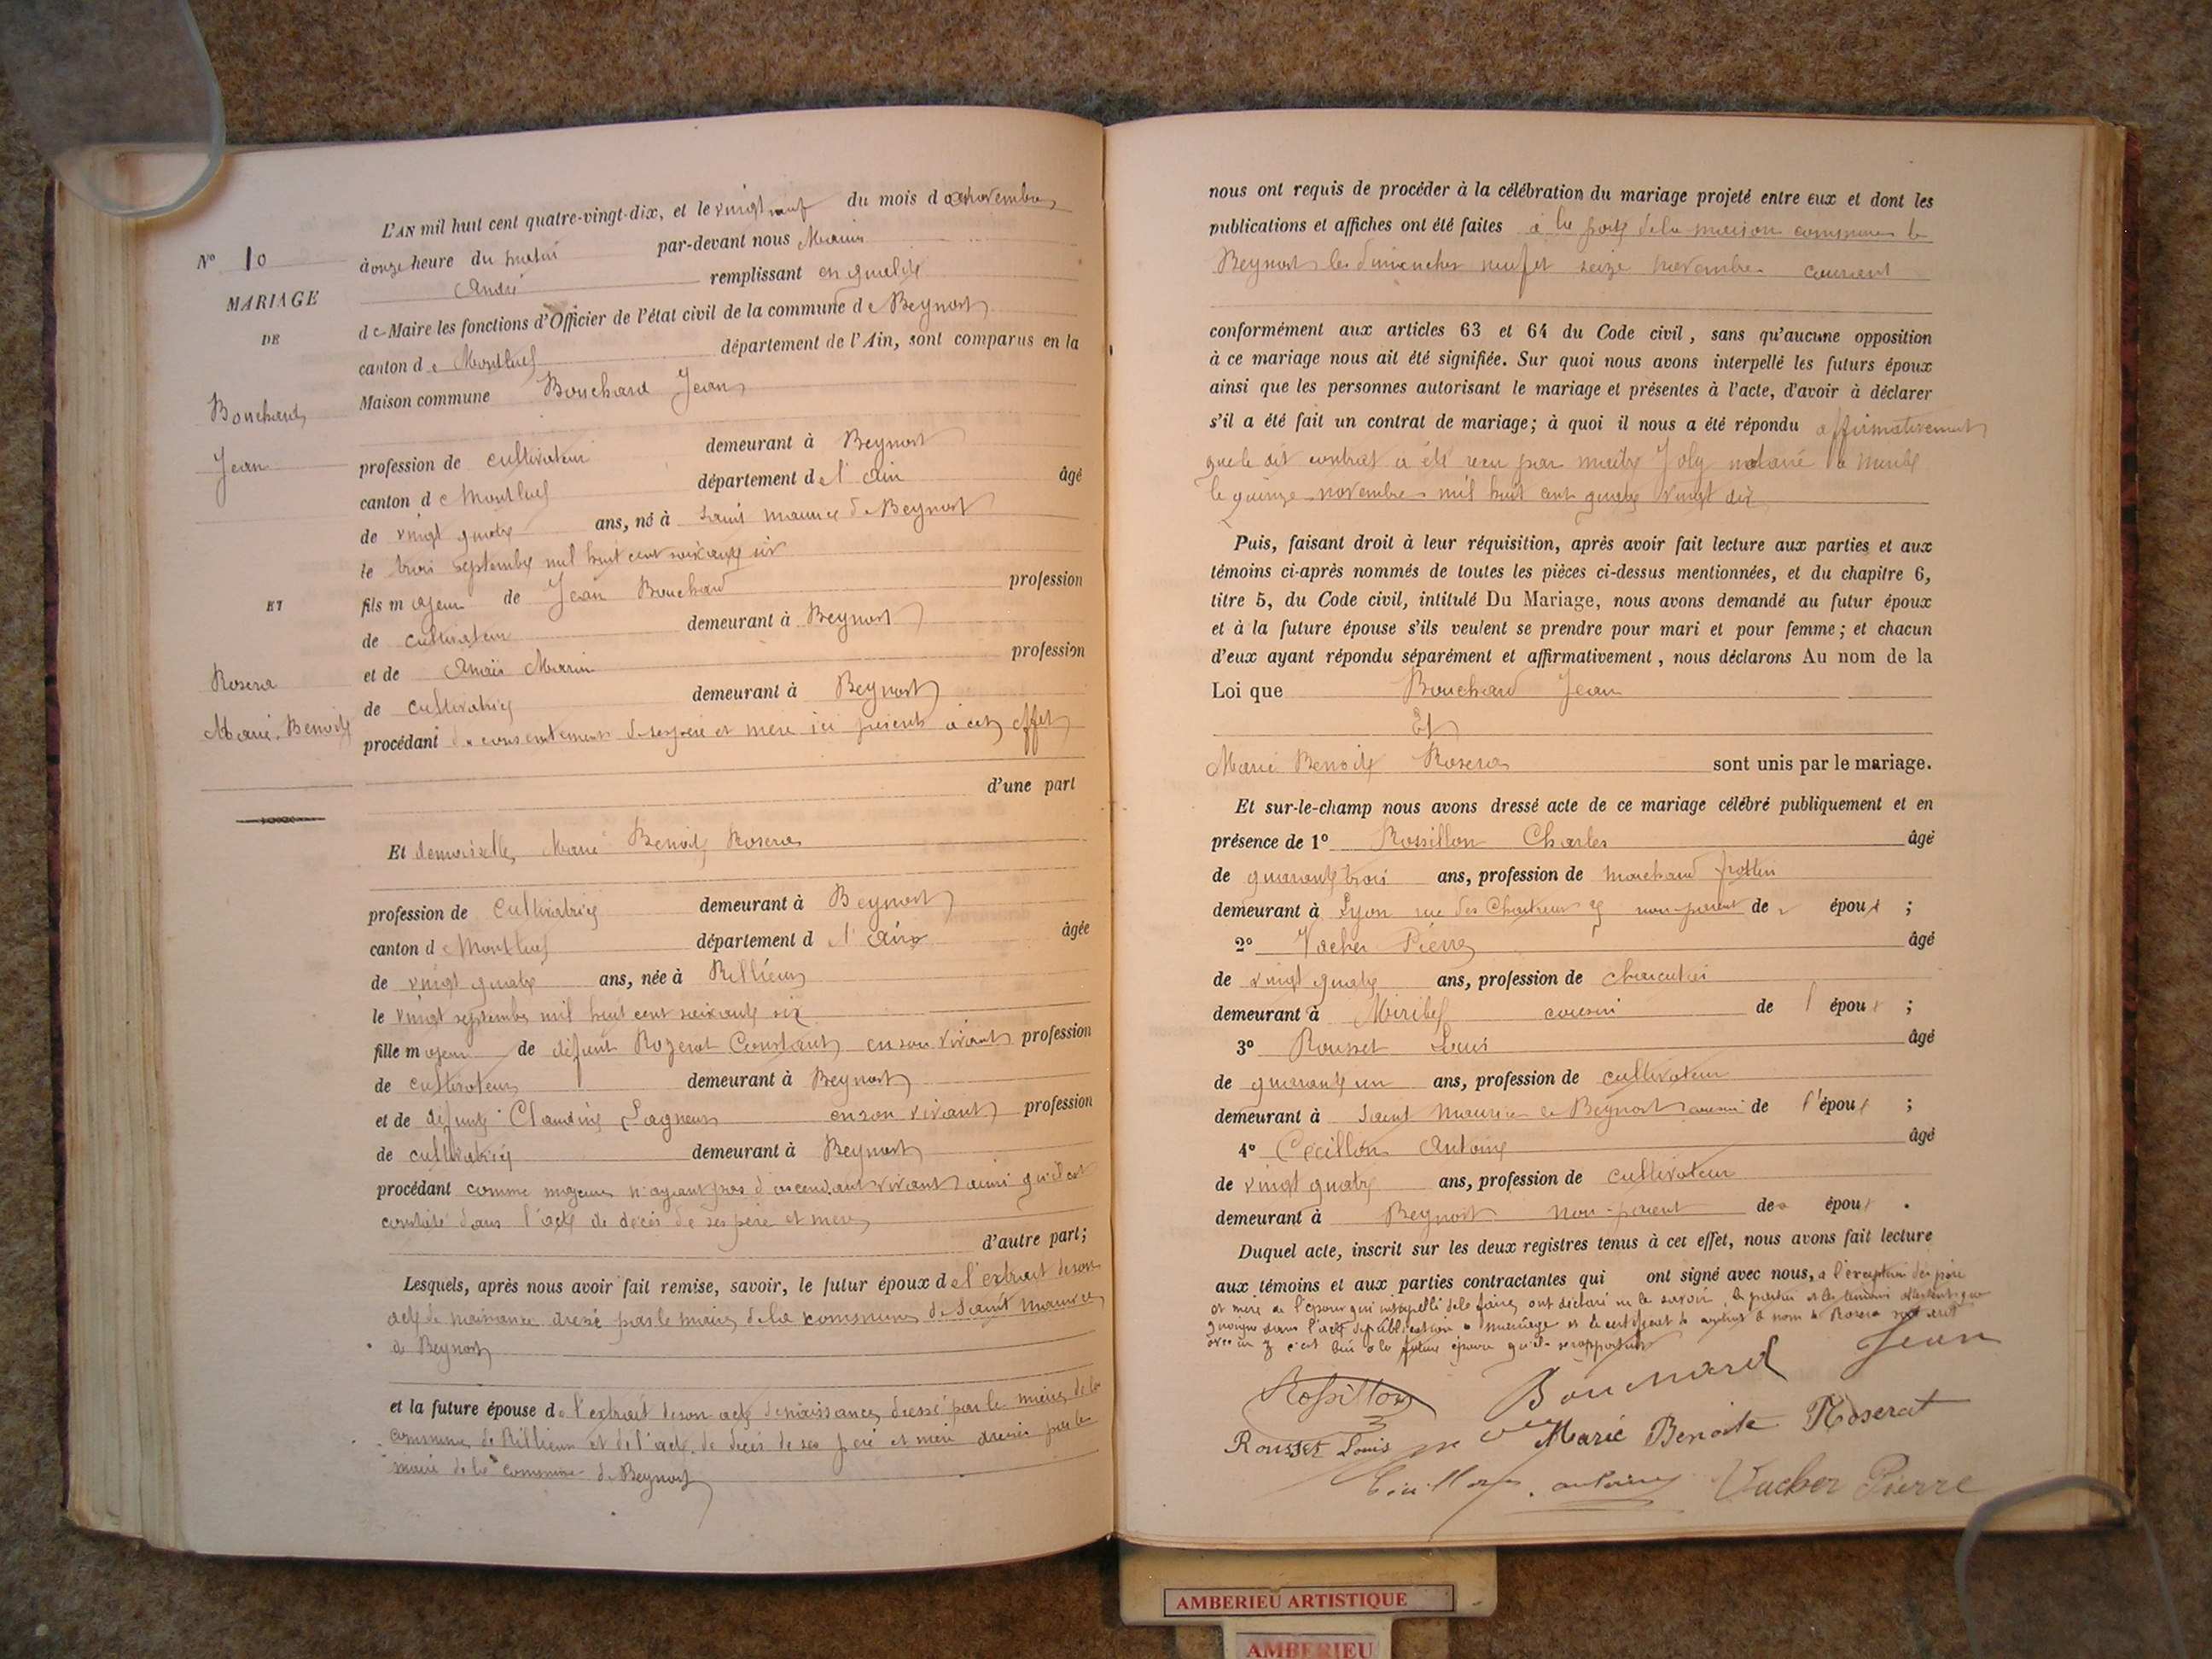 L'AN mil huit cent quatre-vingt-dix, et le vingt neuf du mois de novembre
à onze heure du matin par-devant nous Marin
André remplissant en qualité
de Maire les fonctions d'Officier de l'état civil de la commune de Beynost
canton de Montluel département de l'Ain, sont comparus en la
Maison commune Bouchard Jean
N° 10
MARIAGE
DE
Bouchard
Jean
ET
Rosera
Marie Benoite
profession de cultivateur demeurant à Beynost
canton de Montluel département de l'Ain âgé
de vingt quatre ans, né à Saint Maurice de Beynost
le trois septembre mil huit cent soixante six
fils majeur de Jean Bouchard profession
de cultivateur demeurant à Beynost
et de Marin profession
de cultivatrice demeurant à Beynost
procédant du consentement de ses père et mère ici présents à cet effet
d'une part
Et demoiselle Marie Benoite Rosera
profession de cultivatrice demeurant à Beynost
canton de Montluel département de l'Ain âgée
de vingt quatre ans, née à Rillieux
le vingt septembre mil huit cent soixante six
fille majeure de défunt Rozerat Constant en son vivant profession
de cultivateur demeurant à Beynost
et de défunte Claudine Lagneux en son vivant profession
de cultivatrice demeurant à Beynost
procédant comme majeure n'ayant pas d'ascendant vivant ainsi qu'il est
constaté dans l'acte de décès de ses père et mère
d'autre part;
Lesquels, après nous avoir fait remise, savoir, le futur époux de l'extrait de son
acte de naissance dressé par le maire de la commune de Saint Maurice
de Beynost
et la future épouse de l'extrait de son acte de naissance dressé par le maire de la
commune de Rillieux et de l'acte de décès de ses père et mère dressés par le
maire de la commune de Beynost
nous ont requis de procéder à la célébration du mariage projeté entre eux et dont les
publications et affiches ont été faites à la porte de la maison commune de
Beynost les dimanches neuf et seize novembre courant
conformément aux articles 63 et 64 du Code civil, sans qu'aucune opposition
à ce mariage nous ait été signifiée. Sur quoi nous avons interpellé les futurs époux
ainsi que les personnes autorisant le mariage et présentes à l'acte, d'avoir à déclarer
s'il a été fait un contrat de mariage; à quoi il nous a été répondu affirmativement
que le dit contrat a été reçu par maître Joly notaire à
le quinze novembre mil huit cent quatre vingt dix
Puis, faisant droit à leur réquisition, après avoir fait lecture aux parties et aux
témoins ci-après nommés de toutes les pièces ci-dessus mentionnées, et du chapitre 6,
titre 5, du Code civil, intitulé Du Mariage, nous avons demandé au futur époux
et à la future épouse s'ils veulent se prendre pour mari et pour femme; et chacun
d'eux ayant répondu séparément et affirmativement, nous déclarons Au nom de la
Loi que Bouchard Jean
Et
Marie Benoite Rosera sont unis par le mariage.
Et sur-le-champ nous avons dressé acte de ce mariage célébré publiquement et en
présence de 1° Rossillon Charles âgé
de quarante trois ans, profession de marchand
demeurant à Lyon rue des Chartreux non parent de époux ;
2° Vacher Pierre âgé
de vingt quatre ans, profession de charcutier
demeurant à Miribel cousin de l'époux ;
3° Rousset Louis âgé
de quarante un ans, profession de cultivateur
demeurant à Saint Maurice de Beynost cousin de l'époux ;
4° Cecillon Antoine âgé
de vingt quatre ans, profession de cultivateur
demeurant à Beynost non parent des époux .
Duquel acte, inscrit sur les deux registres tenus à cet effet, nous avons fait lecture
aux témoins et aux parties contractantes qui ont signé avec nous, à l'exception des père
et mère de l'époux qui interpellé de le faire, ont déclaré ne le savoir, les parties et les témoins attestent que
quoique dans l'acte de publication de mariage et le certificat de contrat le nom de Rosera soit écrit
avec un z c'est bien à la future épouse qu'il se rapportent
Bouchard Jean
Rossillon
Marie Benoite Roserat
Rousset Louis
Cecillon antoine Vacher Pierre
AMBERIEU ARTISTIQUE
AMBERIEU